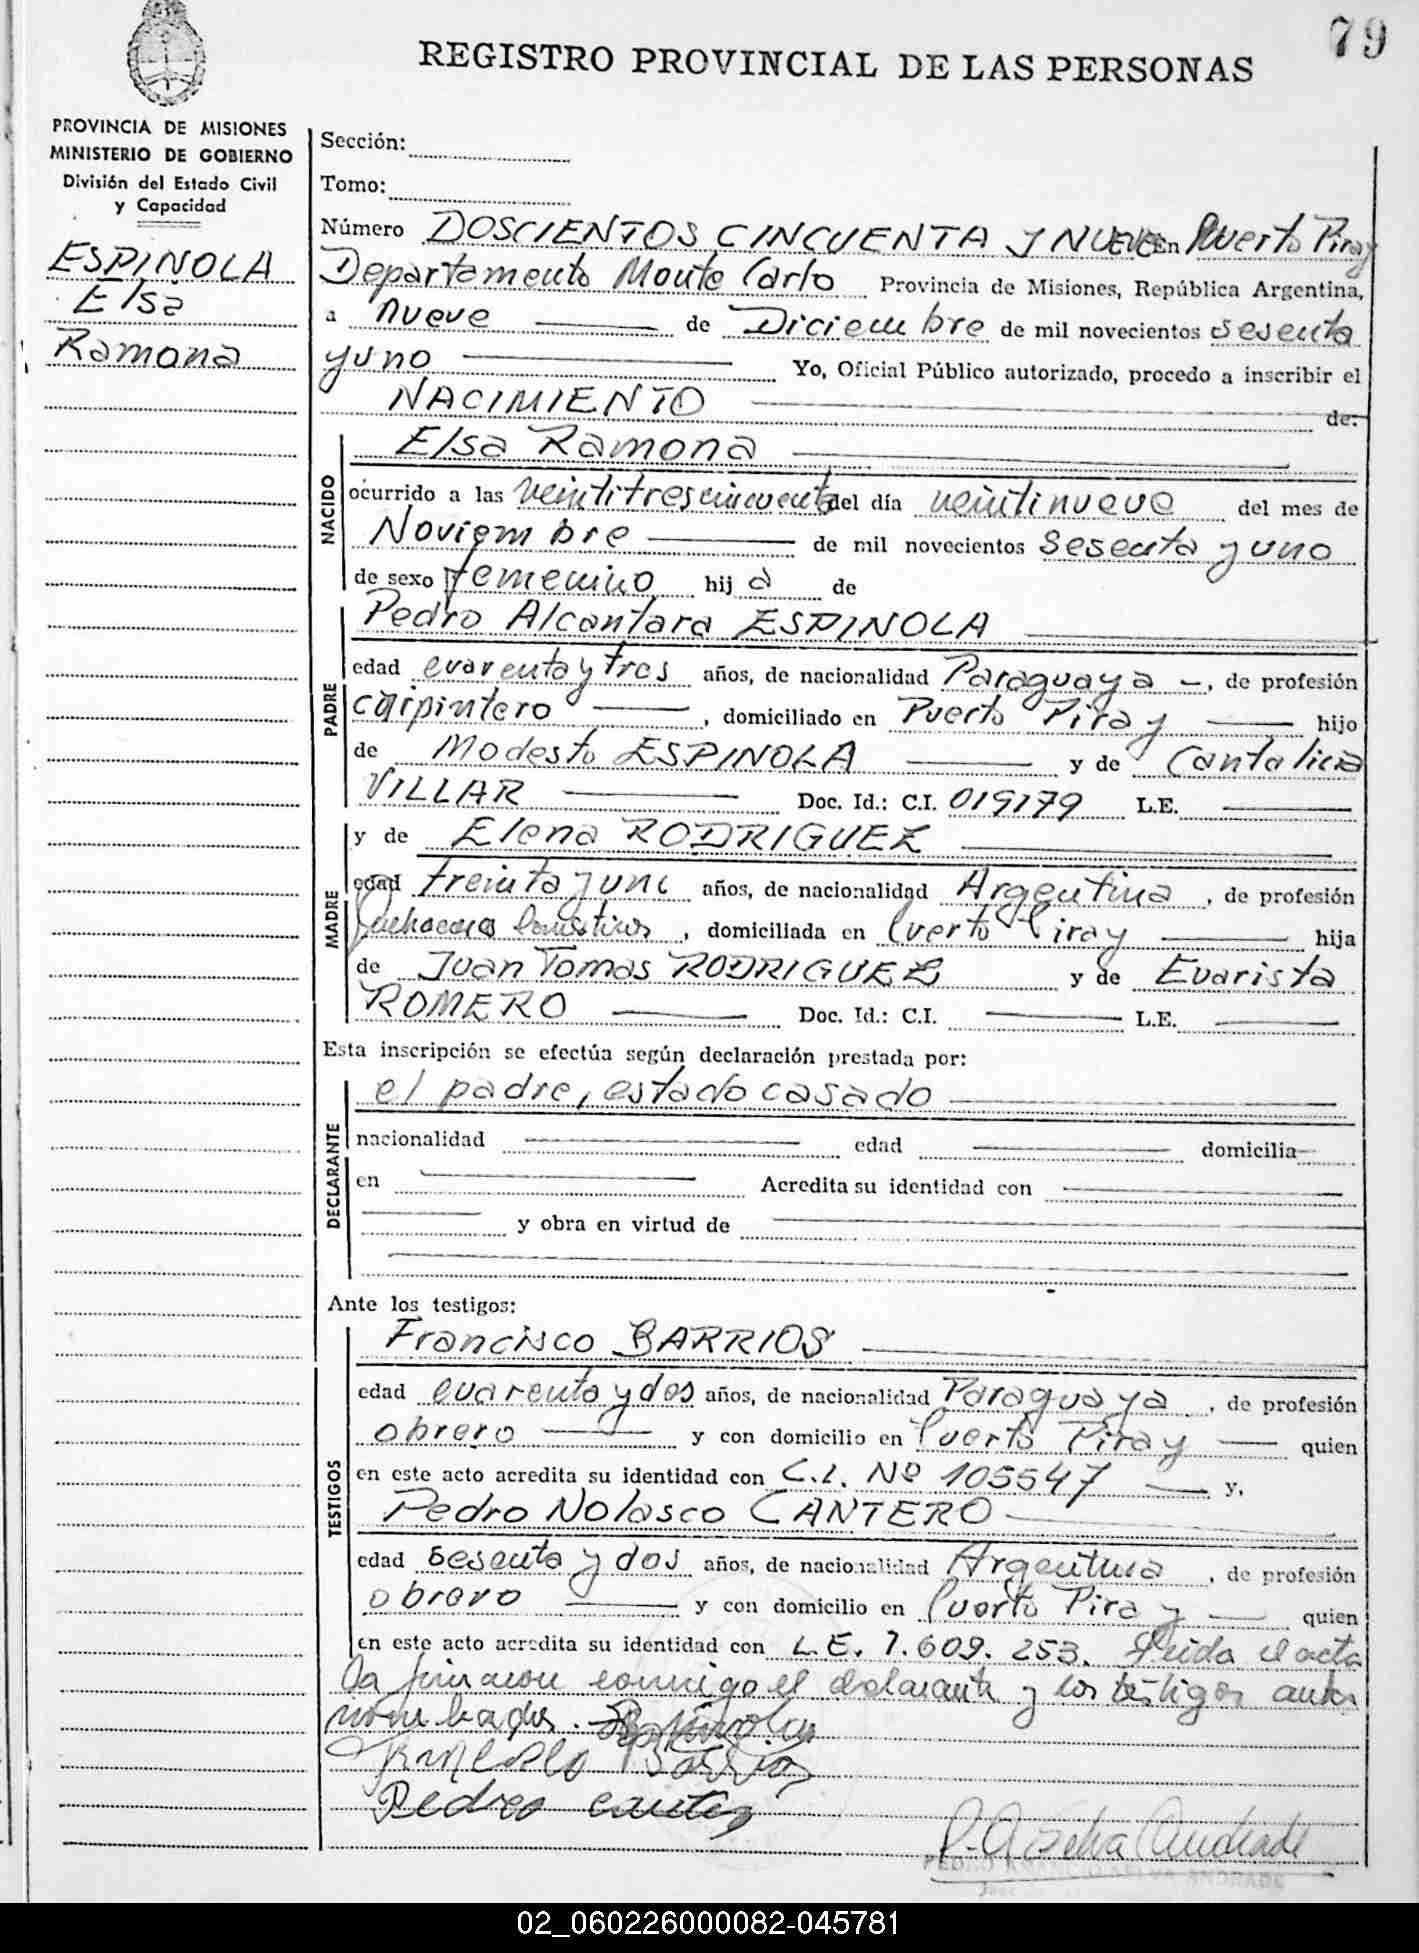 79
REGISTRO PROVINCIAL DE LAS PERSONAS
PROVINCIA DE MISIONES
MINISTERIO DE GOBIERNO
División del Estado Civil
y Capacidad
ESPINOLA
Elsa
Ramona
Sección:
Tomo:
Número DOSCIENTOS CINCUENTA Y NUEVE En Puerto Piray
Departamento Monte Carlo Provincia de Misiones, República Argentina,
a nueve de Diciembre de mil novecientos sesenta
y uno Yo, Oficial Público autorizado, procedo a inscribir el
NACIMIENTO de:
NACIDO
Elsa Ramona
ocurrido a las veintitres cincuenta del día veintinueve del mes de
Noviembre de mil novecientos sesenta y uno
de sexo femenino hij a de
PADRE
Pedro Alcantara ESPINOLA
edad cuarenta y tres años, de nacionalidad Paraguaya, de profesión
carpintero, domiciliado en Puerto Piray hijo
de Modesto ESPINOLA y de Cantalicia
VILLAR Doc. Id.: C.I. 019179 L.E.
MADRE
y de Elena RODRIGUEZ
edad treinta y uno años, de nacionalidad Argentina, de profesión
Quehaceres Domésticos, domiciliada en Puerto Piray hija
de Juan Tomas RODRIGUEZ y de Evarista
ROMERO Doc. Id.: C.I. L.E.
Esta inscripción se efectúa según declaración prestada por:
DECLARANTE
el padre, estado casado
nacionalidad edad domicilia
en Acredita su identidad con
y obra en virtud de
Ante los testigos:
TESTIGOS
Francisco BARRIOS
edad cuarenta y dos años, de nacionalidad Paraguaya, de profesión
obrero y con domicilio en Puerto Piray quien
en este acto acredita su identidad con C.I. Nº 105547 y,
Pedro Nolasco CANTERO
edad sesenta y dos años, de nacionalidad Argentina, de profesión
obrero y con domicilio en Puerto Piray quien
en este acto acredita su identidad con L.E. 7.609.253. Leida el acta
la firmaron conmigo el declarante y los testigos antes
nombrados. Espinola
Francisco Barrios
Pedro
P. A Selva Andrade
PEDRO AMANCIO SELVA ANDRADE
02_060226000082-045781